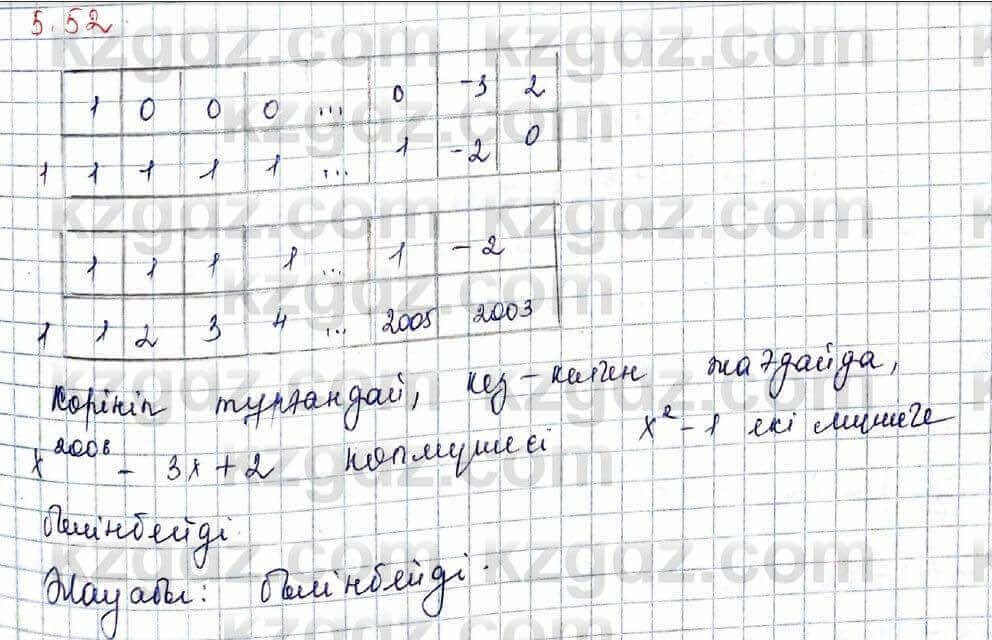 5.52
1 0 0 0 ... 0 -3 2
1 1 1 1 1 ... 1 -2 0
1 1 1 1 ... 1 -2
1 1 2 3 4 ... 2005 2003
Көрініп тұрғандай, кез-келген жағдайда,
x²⁰⁰⁶ - 3x + 2 көпмүшесі x² - 1 екі мүшеге
бөлінбейді.
Жауабы: бөлінбейді.
kzgdz.com